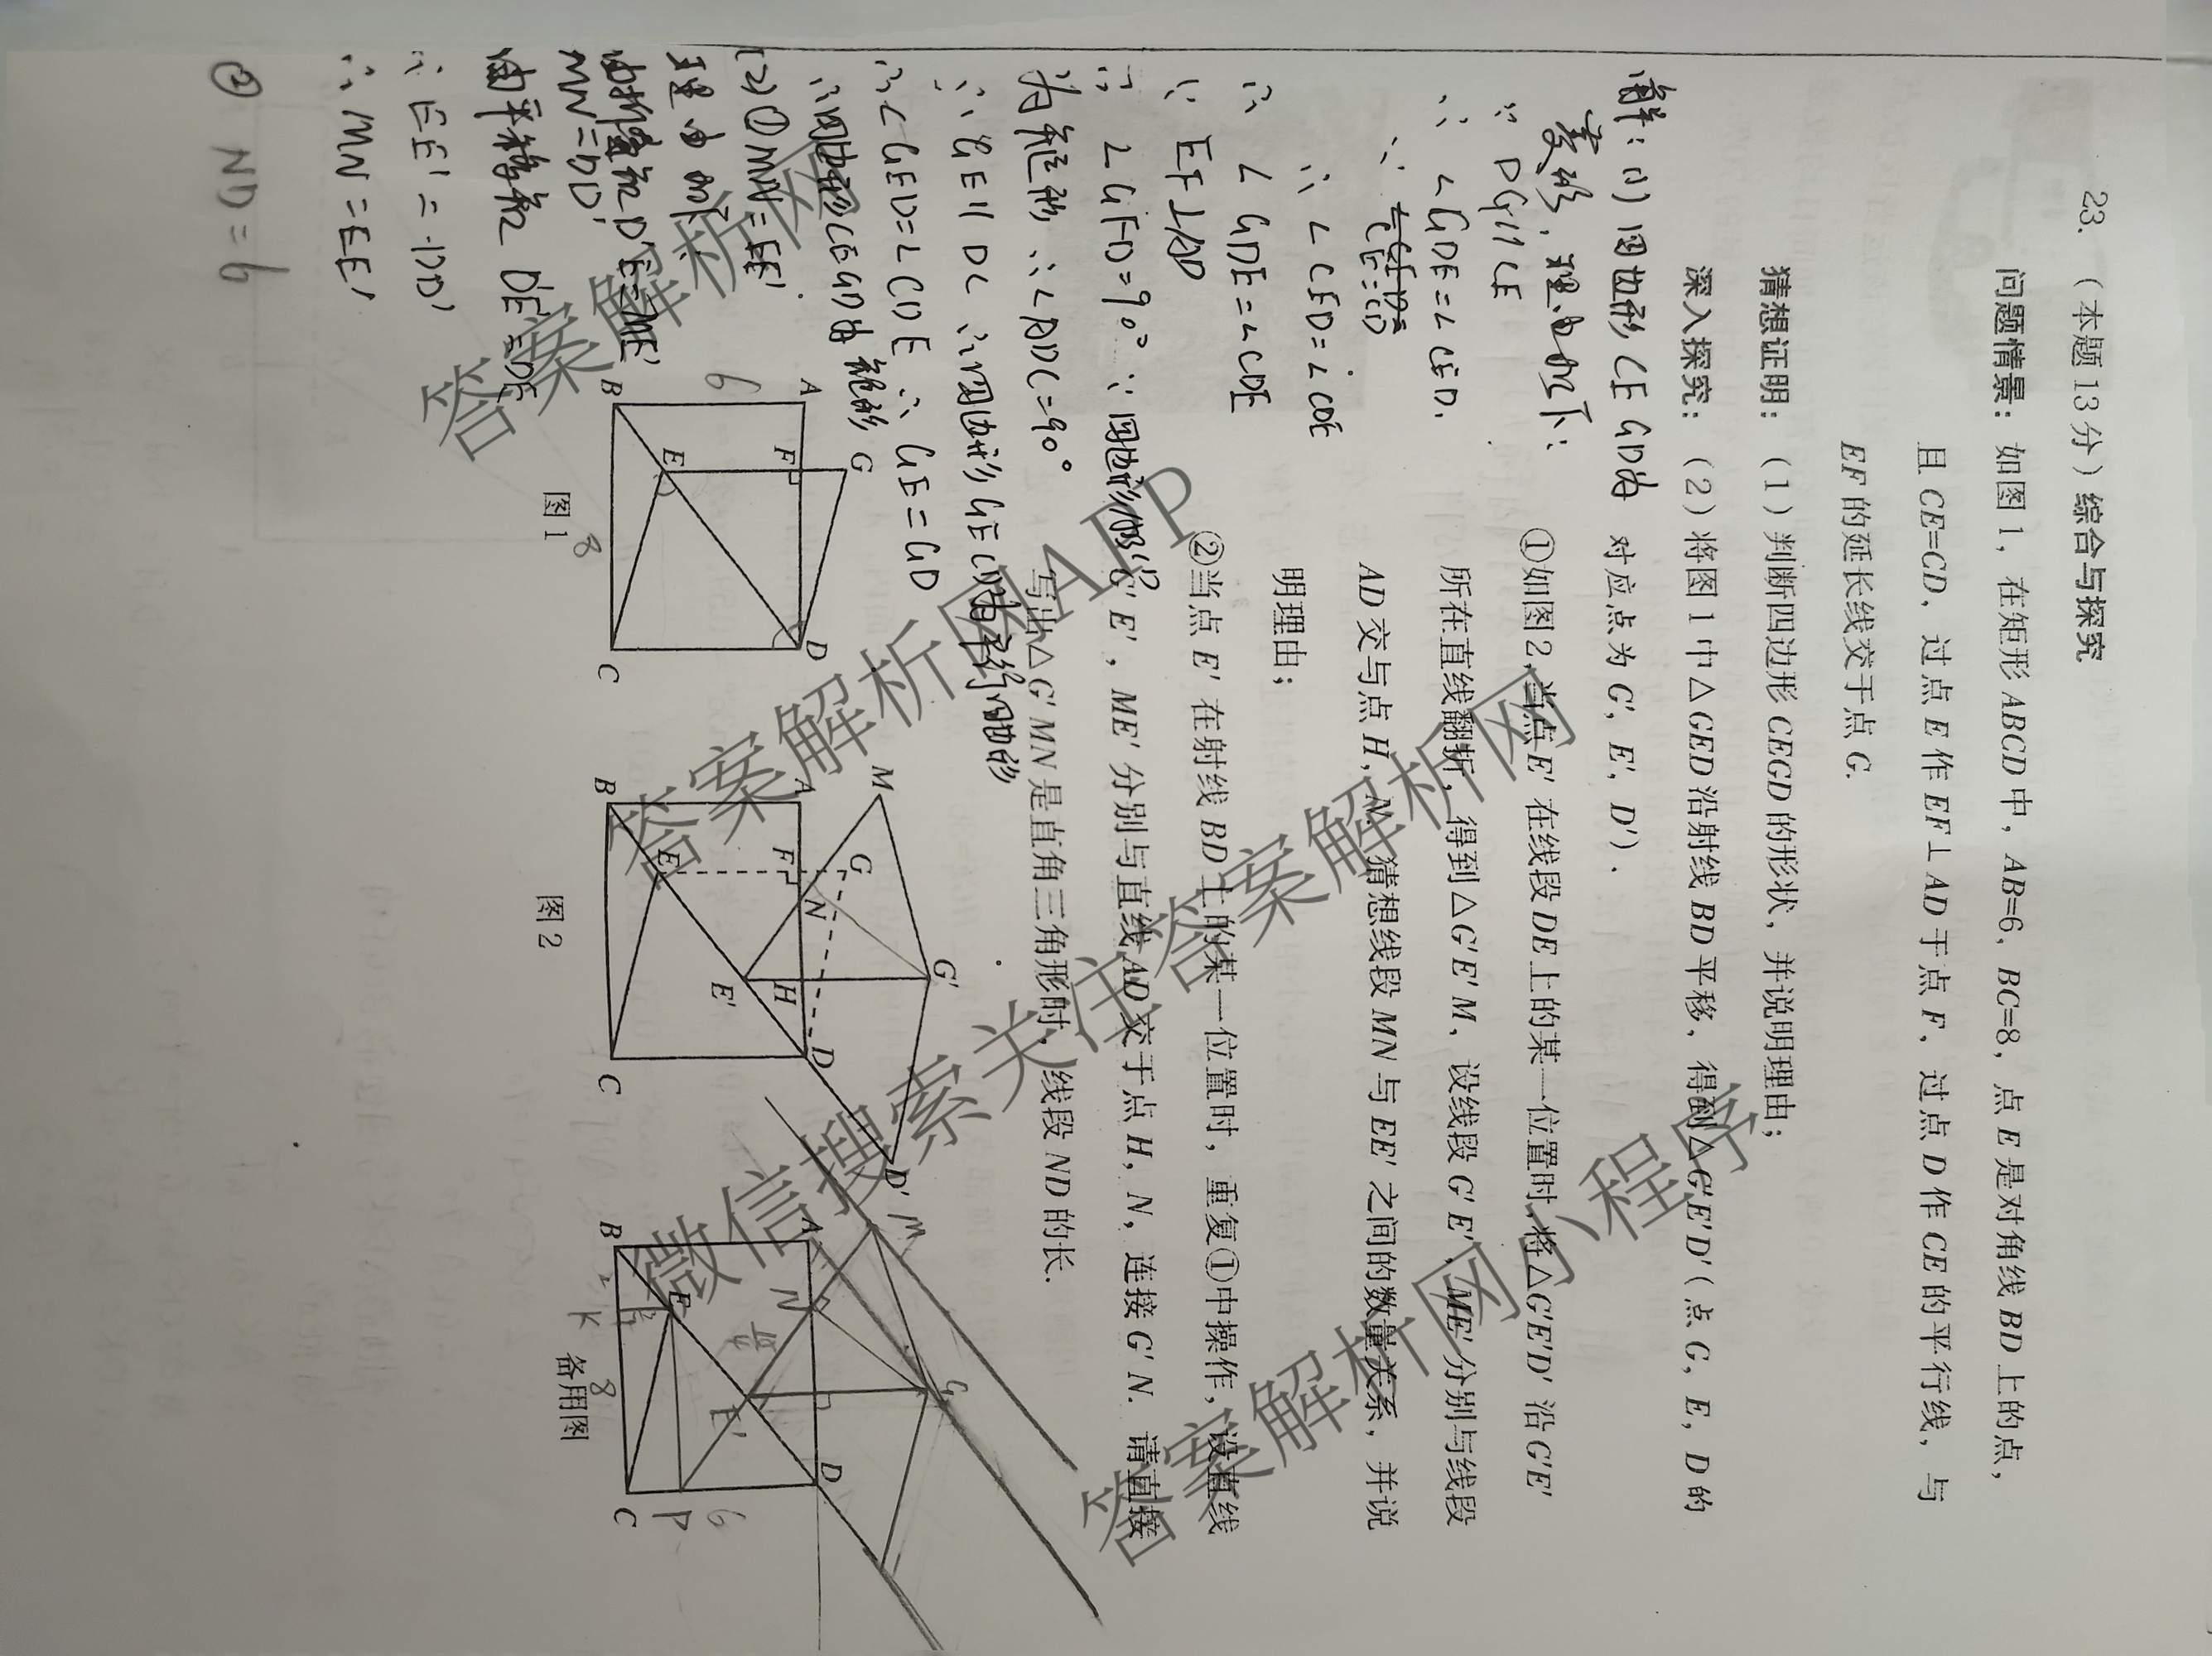 23. （本题13分）综合与探究
问题情景：如图1，在矩形ABCD中，AB=6，BC=8，点E是对角线BD上的点，
且CE=CD，过点E作EF⊥AD于点F，过点D作CE的平行线，与
EF的延长线交于点G.
猜想证明：（1）判断四边形CEGD的形状，并说明理由；
深入探究：（2）将图1中△GED沿射线BD平移，得到△G′E′D′（点G，E，D的
对应点为G′，E′，D′）.
①如图2，当点E′在线段DE上的某一位置时，将△G′E′D′沿G′E′
所在直线翻折，得到△G′E′M，设线段G′E′，ME′分别与线段
AD交与点H，N. 猜想线段MN与EE′之间的数量关系，并说
明理由；
②当点E′在射线BD上的某一位置时，重复①中操作，设直线
G′E′，ME′分别与直线AD交于点H，N，连接G′N. 请直接
写出△G′MN是直角三角形时，线段ND的长.
解：(1)四边形CEGD为
菱形，理由如下：
∵DG∥CE
∴∠GDE=∠CED.
∵CE=CD
∴∠CED=∠CDE
∴∠GDE=∠CDE
∵EF⊥AD
∴∠GFD=90° ∵四边形ABCD
为矩形 ∴∠ADC=90°
∴GE∥DC ∴四边形GECD为平行四边形
∵∠GED=∠CDE ∴GE=GD
∴四边形CEGD为菱形
(2)①MN=EE′
理由如下
由折叠知D′E′=ME′
MN=DD′
由平移知D′E′=DE
∴EE′=DD′
∴MN=EE′
② ND=6
A
F
G
D
B
E
C
6
8
图1
M
A
F
G
N
G′
H
D
D′
B
E
E′
C
图2
M
A
N
G′
D
B
E
E′
P
C
6
8
备用图
答案解析网
答案解析网APP
微信搜索关注答案解析网
答案解析网小程序